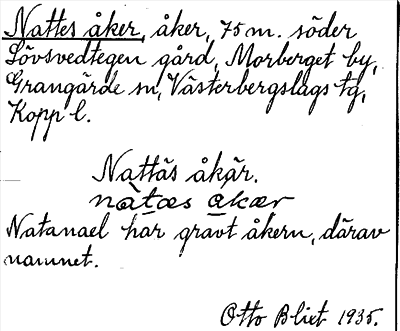 Nattes åker, åker, 75 m. söder
Lövsvedtegen gård, Morberget by,
Grangärde sn, Västerbergslags tg,
Kopp l.
Nattäs åkär.
nàtæs ạkær
Natanael har grävt åkern, därav
namnet.
Otto Blixt 1935.